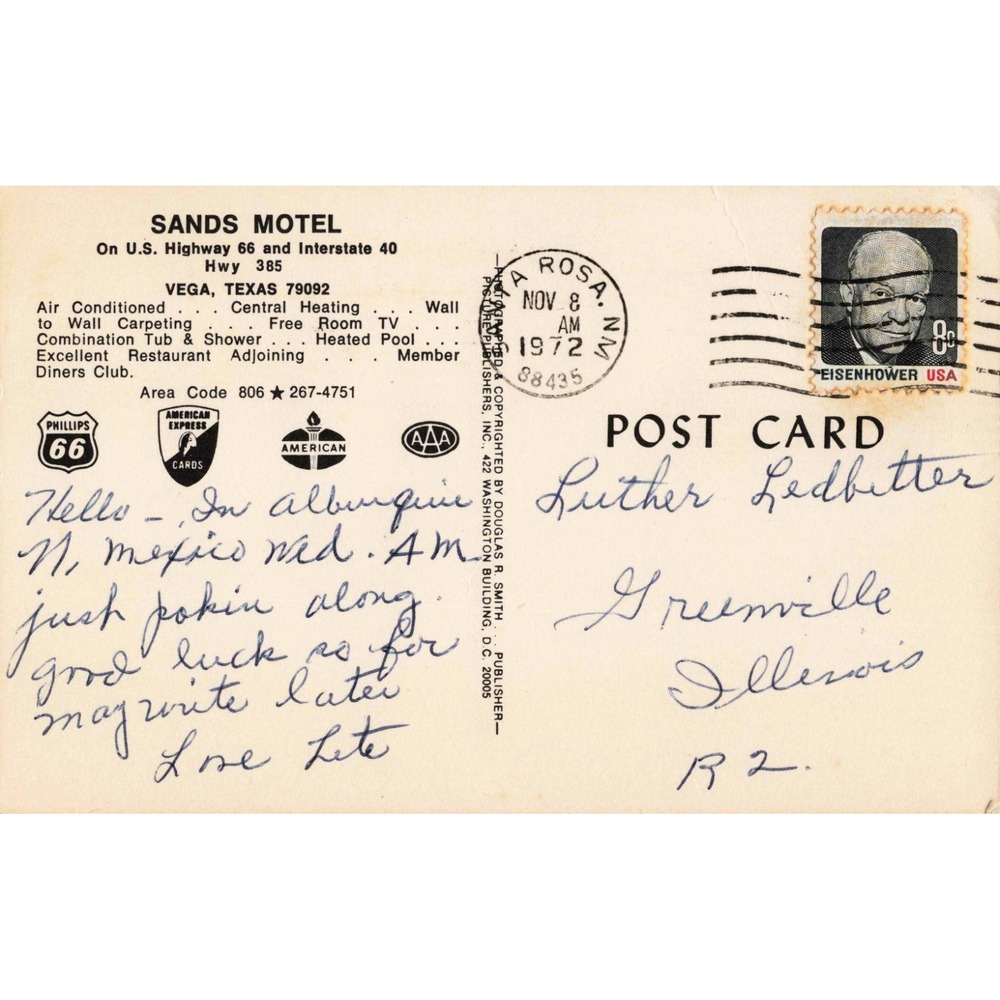 SANDS MOTEL
On U.S. Highway 66 and Interstate 40
Hwy 385
VEGA, TEXAS 79092
Air Conditioned . . . Central Heating . . . Wall
to Wall Carpeting . . . Free Room TV . . .
Combination Tub & Shower . . . Heated Pool . . .
Excellent Restaurant Adjoining . . . Member
Diners Club.
Area Code 806 ★ 267-4751
PHILLIPS
66
AMERICAN
EXPRESS
CARDS
AMERICAN
AAA
Hello – In Alburquie
N, Mexico Wed. AM.
just pokin along.
good luck so for
may write later
Love
—PHOTOGRAPHED & COPYRIGHTED BY DOUGLAS R. SMITH . . . PUBLISHER—
PICTURE PUBLISHERS, INC., 422 WASHINGTON BUILDING, D.C. 20005
SANTA ROSA. NM
NOV 8
AM
1972
88435
8c
EISENHOWER USA
POST CARD
Luther Ledbetter
Greenville
Illinois
R 2.